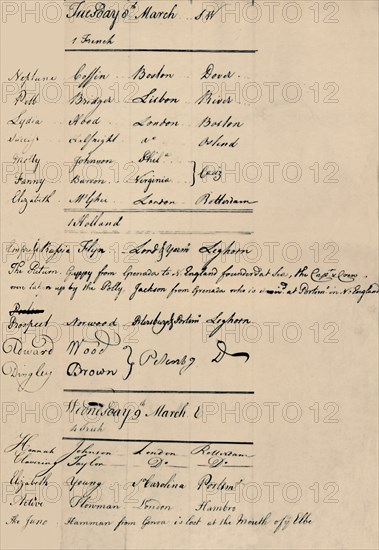 Tuesday 8th March S.W
1 French
Neptune Coffin Boston Dover
Pitt Bridger Lisbon River
Lydia Hood London Boston
Do Ostend
Molly Johnson Phila
Fanny Barron Virginia } Cadiz
Elizabeth London Rotterdam
1 Holland
Russia Flyn Lond & Yarmo Leghorn
The Pitcairn Guppy from Grenada to N England foundered at Sea, the Captn & Crew
were taken up by the Polly Jackson from Grenada who is at Portsmo in N: England
Prospect Norwood Petersburg & Portsmo Leghorn
Reward Wood
Dingley Brown } Petersbg Do
Wednesday 9th March E
4 Irish
Hannah Johnson London Rotterdam
Taylor Do Do
Elizabeth Young Carolina Portsmo
Active Plowman London Hambro
The Juno Hamman from Genoa is lost at the Mouth of ye Elbe